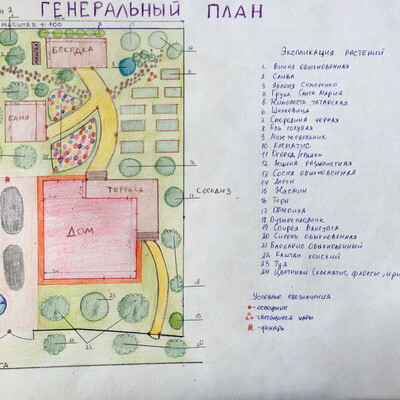 ГЕНЕРАЛЬНЫЙ ПЛАН
МАСШТАБ 1:100
БЕСЕДКА
БАНЯ
ТЕРРАСА
ДОМ
Экспликация растений
1. Вишня обыкновенная
2. Слива
3. Яблоня Семеренко
4. Груша Санта Мария
5. Жимолость татарская
6. Шелковица
7. Смородина черная
8. Ель голубая
9. Можжевельник
10. Клематис
11. Огород/грядки
12. Вишня разлистная
13. Сосна обыкновенная
14. Дерен
15. Жасмин
16. Терн
17. Ежевика
18. Пузыреплодник
19. Спирея Вангутта
20. Сирень обыкновенная
21. Барбарис обыкновенный
22. Каштан конский
23. Туя
24. Цветники (клематис, флоксы, ири
Условные обозначения
- освещение
- светящиеся шары
- фонарь
23
21
22
20